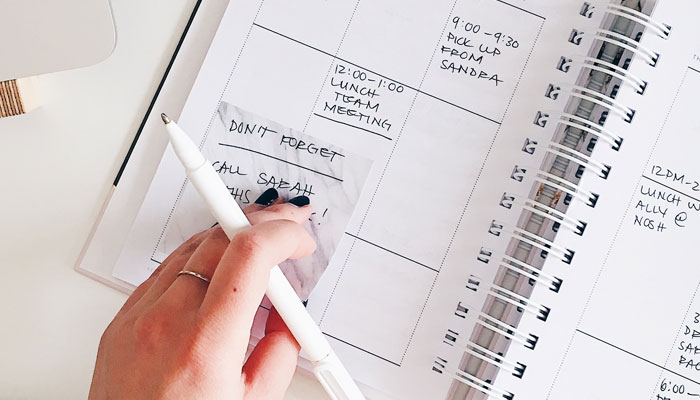 9:00-9:30
PICK UP
FROM
SANDRA
12:00-1:00
LUNCH
TEAM
MEETING
DON'T FORGET
CALL SARAH
THIS
!
12PM-2
LUNCH W
ALLY @
NOSH
3
DR
SAR
BAC
6:00